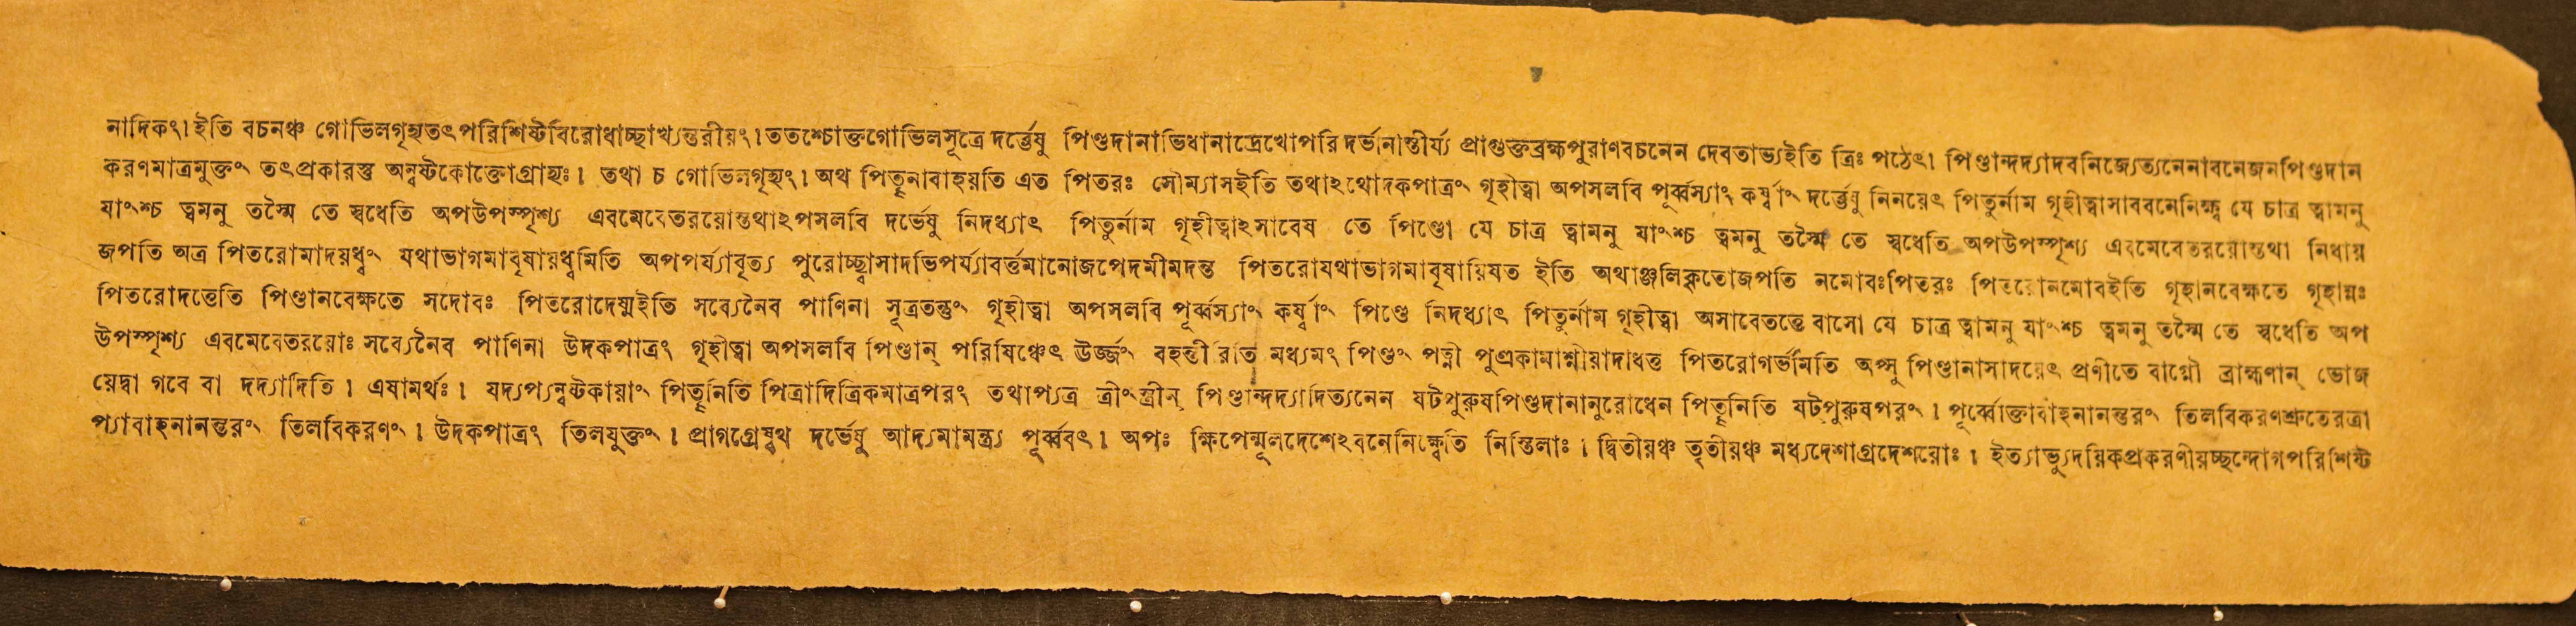 নাদিকং। ইতি বচনঞ্চ গোভিলগৃহ্যতৎপরিশিষ্টবিরোধাচ্ছাখ্যন্তরীয়ং। ততশ্চোক্তগোভিলসূত্রে দর্ভেষু পিণ্ডদানাভিধানাদ্রেখোপরি দর্ভানাস্তীর্য্য প্রাগুক্তব্রহ্মপুরাণবচনেন দেবতাভ্যইতি ত্রিঃ পঠেৎ। পিণ্ডান্দদ্যাদবনিজ্যেত্যনেনাবনেজনপিণ্ডদান
করণমাত্রমুক্তং তৎপ্রকারস্তু অন্বষ্টকোক্তোগ্রাহ্যঃ। তথা চ গোভিলগৃহ্যং। অথ পিতৄনাবাহয়তি এত পিতরঃ সৌম্যাসইতি তথাঽথোদকপাত্রং গৃহীত্বা অপসলবি পূর্ব্বস্যাং কর্ষ্বাং দর্ভেষু নিনয়েৎ পিতুর্নাম গৃহীত্বাসাববনেনিক্ষ্ব যে চাত্র ত্বামনু
যাংশ্চ ত্বমনু তস্মৈ তে স্বধেতি অপউপস্পৃশ্য এবমেবেতরয়োস্তথাঽপসলবি দর্ভেষু নিদধ্যাৎ পিতুর্নাম গৃহীত্বাঽসাবেষ তে পিণ্ডো যে চাত্র ত্বামনু যাংশ্চ ত্বমনু তস্মৈ তে স্বধেতি অপউপস্পৃশ্য এবমেবেতরয়োস্তথা নিধায়
জপতি অত্র পিতরোমাদয়ধ্বং যথাভাগমাবৃষায়ধ্বমিতি অপপর্য্যাবৃত্য পুরোচ্ছ্বাসাদভিপর্য্যাবর্ত্তমানোজপেদমীমদন্ত পিতরোযথাভাগমাবৃষায়িষত ইতি অথাঞ্জলিকৃতোজপতি নমোবঃপিতরঃ পিতরোনমোবইতি গৃহানবেক্ষতে গৃহান্নঃ
পিতরোদত্তেতি পিণ্ডানবেক্ষতে সদোবঃ পিতরোদেষ্মইতি সব্যেনৈব পাণিনা সূত্রতন্তুং গৃহীত্বা অপসলবি পূর্ব্বস্যাং কর্ষ্বাং পিণ্ডে নিদধ্যাৎ পিতুর্নাম গৃহীত্বা অসাবেতত্তে বাসো যে চাত্র ত্বামনু যাংশ্চ ত্বমনু তস্মৈ তে স্বধেতি অপ
উপস্পৃশ্য এবমেবেতরয়োঃ সব্যেনৈব পাণিনা উদকপাত্রং গৃহীত্বা অপসলবি পিণ্ডান্ পরিষিঞ্চেৎ ঊর্জ্জং বহন্তী রিতি মধ্যমং পিণ্ডং পত্নী পুত্রকামাশ্নীয়াদাধত্ত পিতরোগর্ভমিতি অপ্সু পিণ্ডানাসাদয়েৎ প্রণীতে বাগ্নৌ ব্রাহ্মণান্ ভোজ
য়েদ্বা গবে বা দদ্যাদিতি। এষামর্থঃ। যদ্যপ্যন্বষ্টকায়াং পিতৄনিতি পিত্রাদিত্রিকমাত্রপরং তথাপ্যত্র ত্রীংস্ত্রীন্ পিণ্ডান্দদ্যাদিত্যনেন ষটপুরুষপিণ্ডদানানুরোধেন পিতৄনিতি ষটপুরুষপরং। পূর্ব্বোক্তাবাহনানন্তরং তিলবিকরণশ্রুতেরত্রা
প্যাবাহনানন্তরং তিলবিকরণং। উদকপাত্রং তিলযুক্তং। প্রাগগ্রেষ্বথ দর্ভেষু আদ্যমামন্ত্র্য পূর্ব্ববৎ। অপঃ ক্ষিপেন্মূলদেশেঽবনেনিক্ষ্বেতি নিস্তিলাঃ। দ্বিতীয়ঞ্চ তৃতীয়ঞ্চ মধ্যদেশাগ্রদেশয়োঃ। ইত্যাভ্যুদয়িকপ্রকরণীয়চ্ছন্দোগপরিশিষ্ট